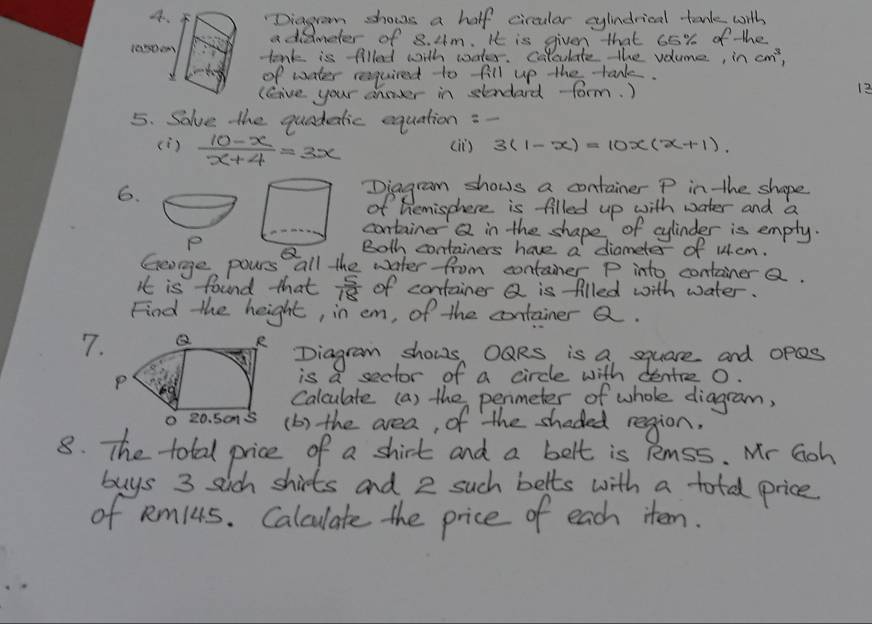 4. Diagram shows a half circular cylindrical tank with
a diameter of 8.4m. It is given that 65% of the
1050cm
tank is filled with water. Calculate the volume, in cm³,
of water required to fill up the tank.
(Give your answer in standard form.)
13
5. Solve the quadratic equation :-
(i) (10-x)/(x+4) = 3x (ii) 3(1-x) = 10x(x+1).
6. Diagram shows a container P in the shape
of hemisphere is filled up with water and a
container Q in the shape of cylinder is empty.
P Q Both containers have a diameter of 14cm.
George pours all the water from container P into container Q.
It is found that 5/18 of container Q is filled with water.
Find the height, in cm, of the container Q.
7. Q R Diagram shows OQRS is a square and OPQS
P is a sector of a circle with centre O.
Calculate (a) the perimeter of whole diagram,
O 20.5cm S (b) the area, of the shaded region.
8. The total price of a shirt and a belt is RM55. Mr Goh
buys 3 such shirts and 2 such belts with a total price
of RM145. Calculate the price of each item.